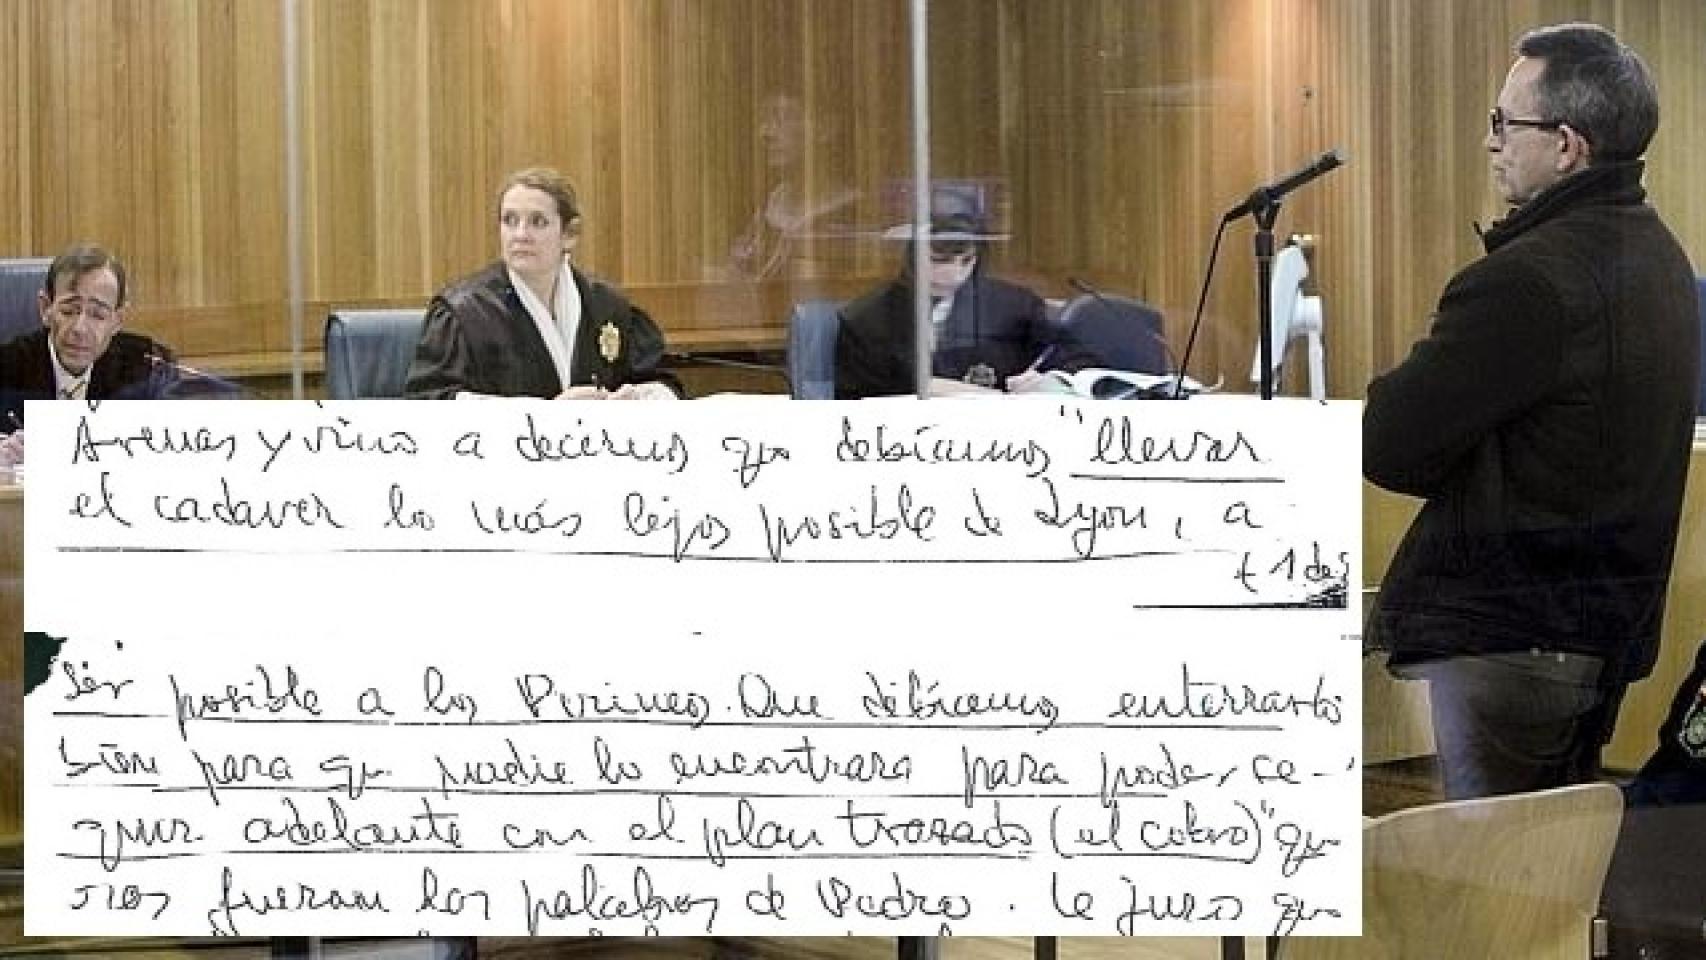 Arenas y vino a decirnos que debíamos "llevar
el cadaver lo más lejos posible de Lyon, a
ser posible a los Pirineos. Que debíamos enterrarlo
bien para que nadie lo encontrara para poder se-
guir adelante con el plan trazado (el cobro)" que
fueran las palabras de Pedro. Le juro que